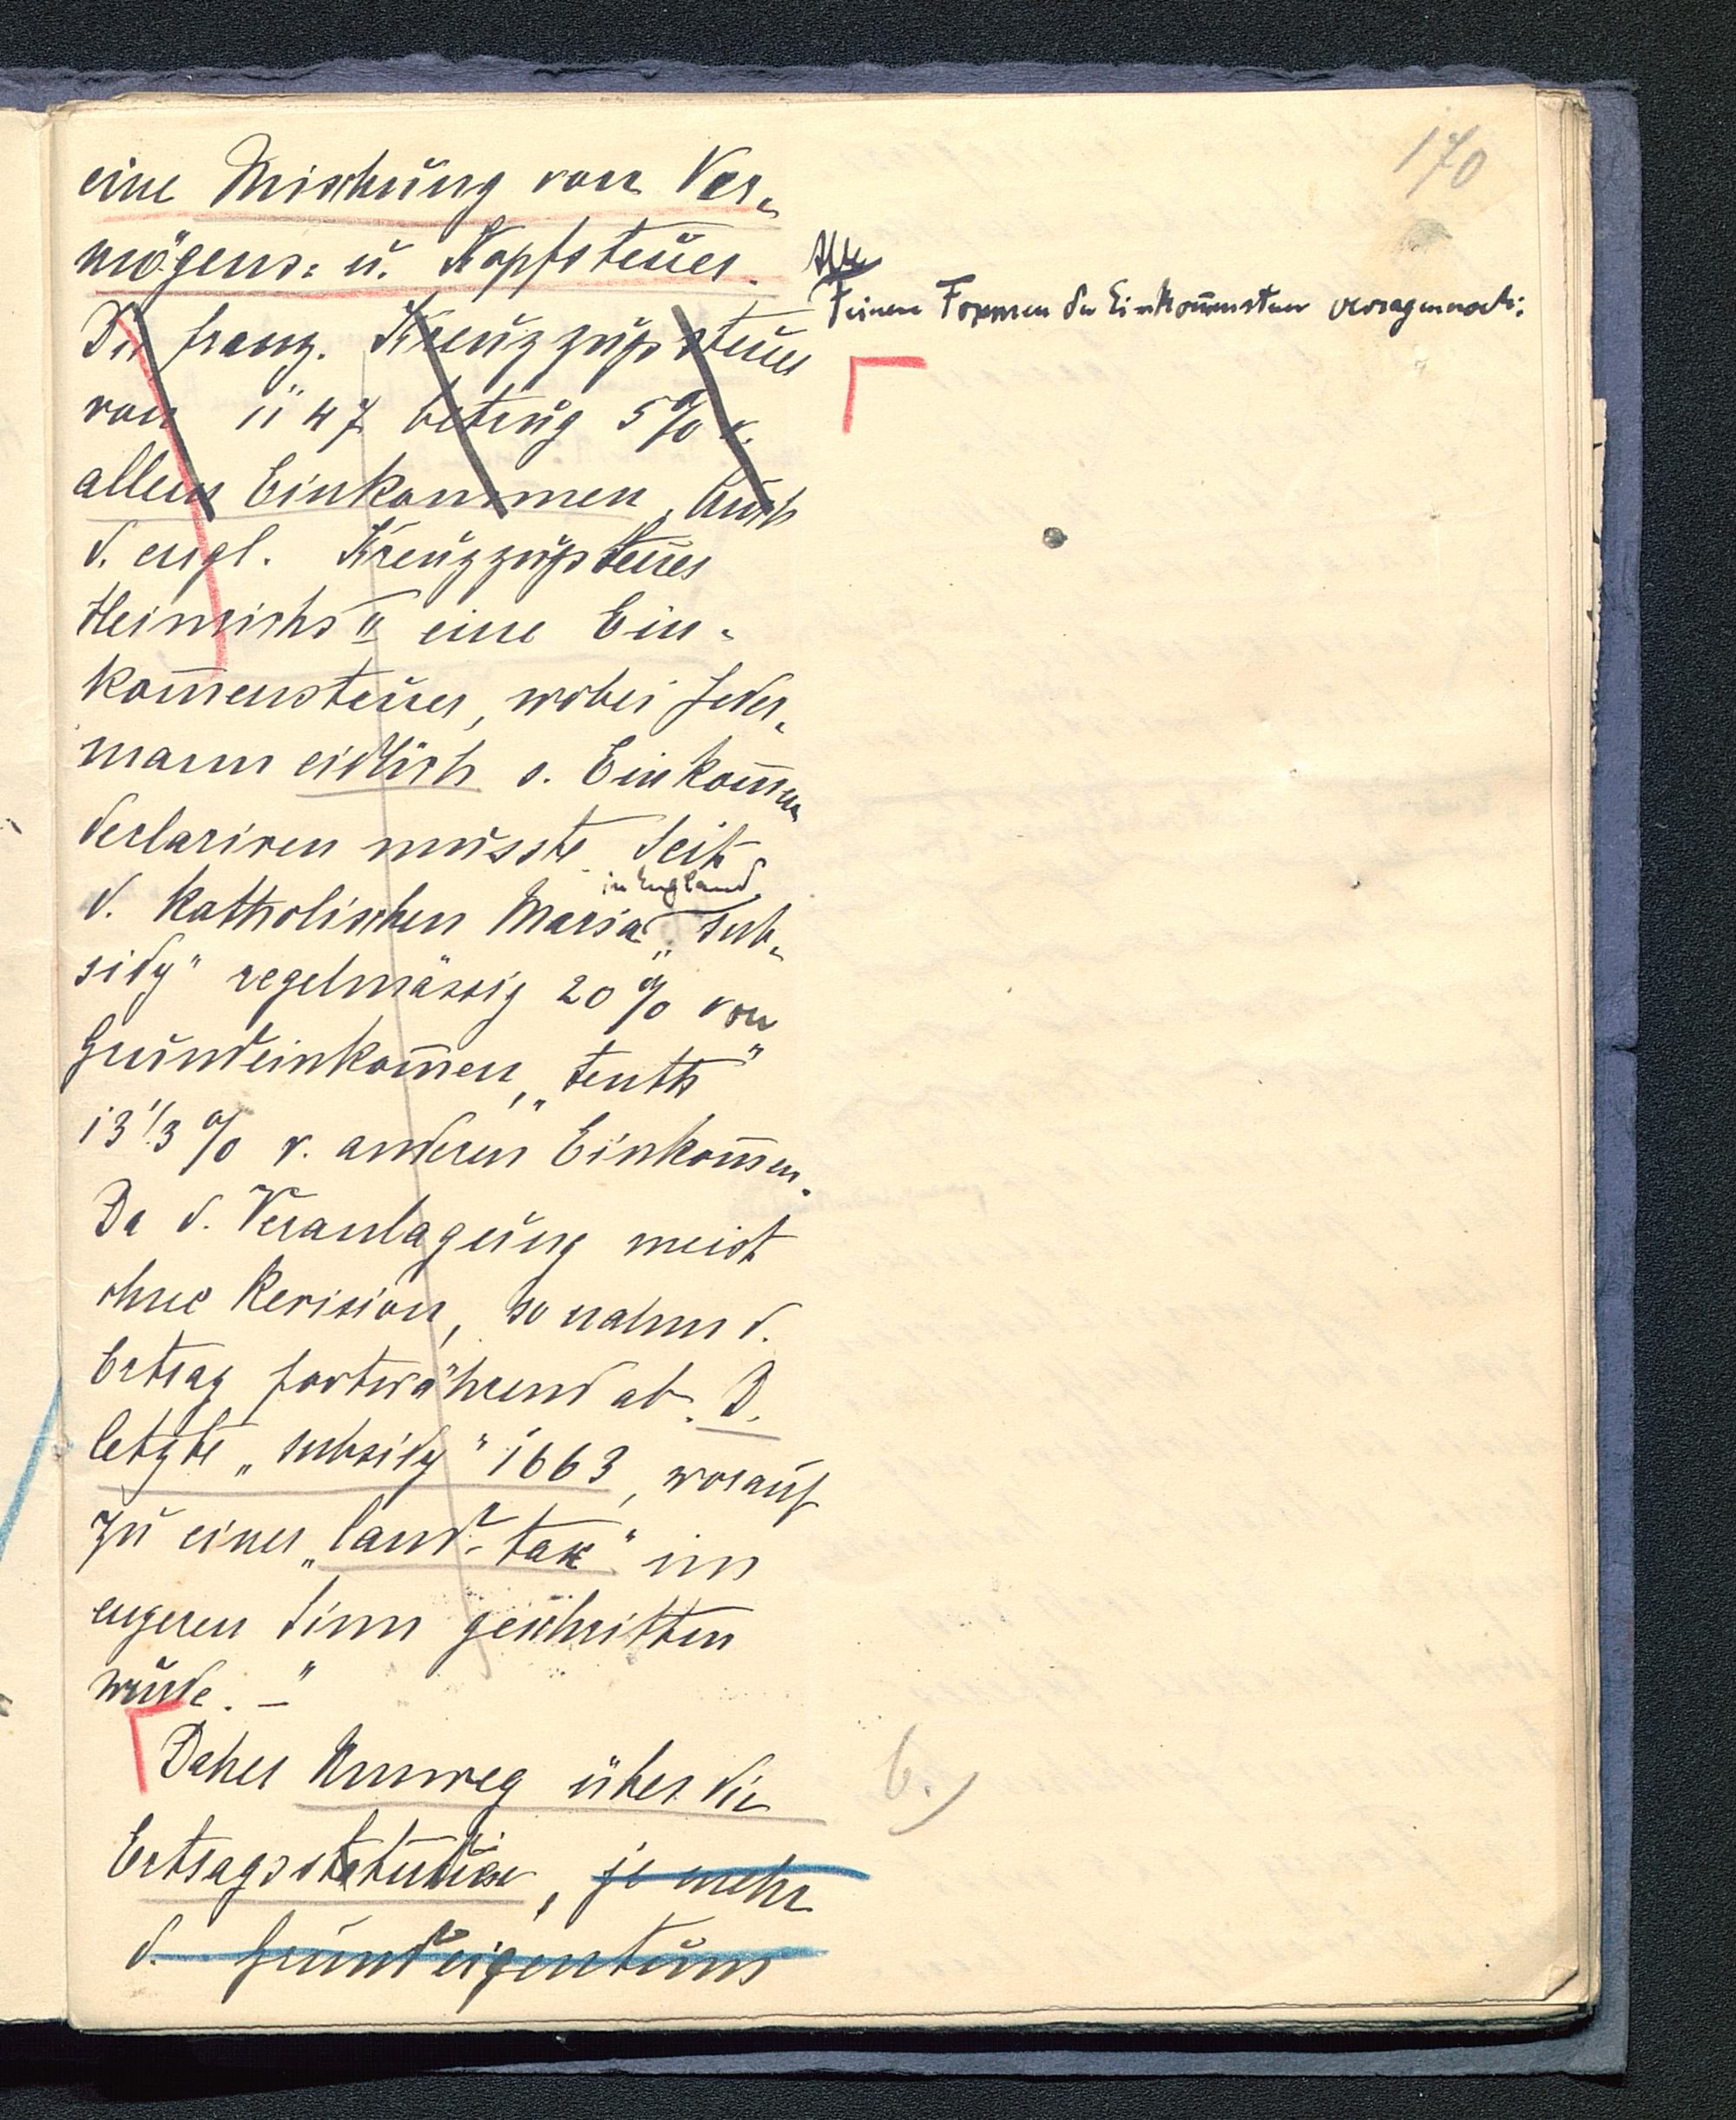 170
eine Mischung von Ver-
mögens- u. Kopfsteuer.
Die franz. Kreuzzugssteuer
von 1147 betrug 5% v.
allem Einkommen, Auch
d. engl. Kreuzzugssteuer
Heinrichs II eine Ein-
kom̅ensteuer, wobei Jeder-
mann eidlich s. Einkom̅en
declariren musste. Seit
d. katholischen Maria in England „sub-
sidy" regelmässig 20% von
Grundeinkom̅en, „tenth"
13 1/3 % v. anderen Einkom̅en.
Da d. Veranlagung meist
ohne Revision, so nahm d.
Ertrag fortwährend ab. D.
letzte „subsidy" 1663, worauf
zu einer „land-tax" im
engeren Sinn geschritten
wurde. –"
Daher Umweg über die
Ertragsstatistik, je mehr
d. Grundeigentums
Feinere Formen der Einkom̅ensteuer versagen noch:
b.)